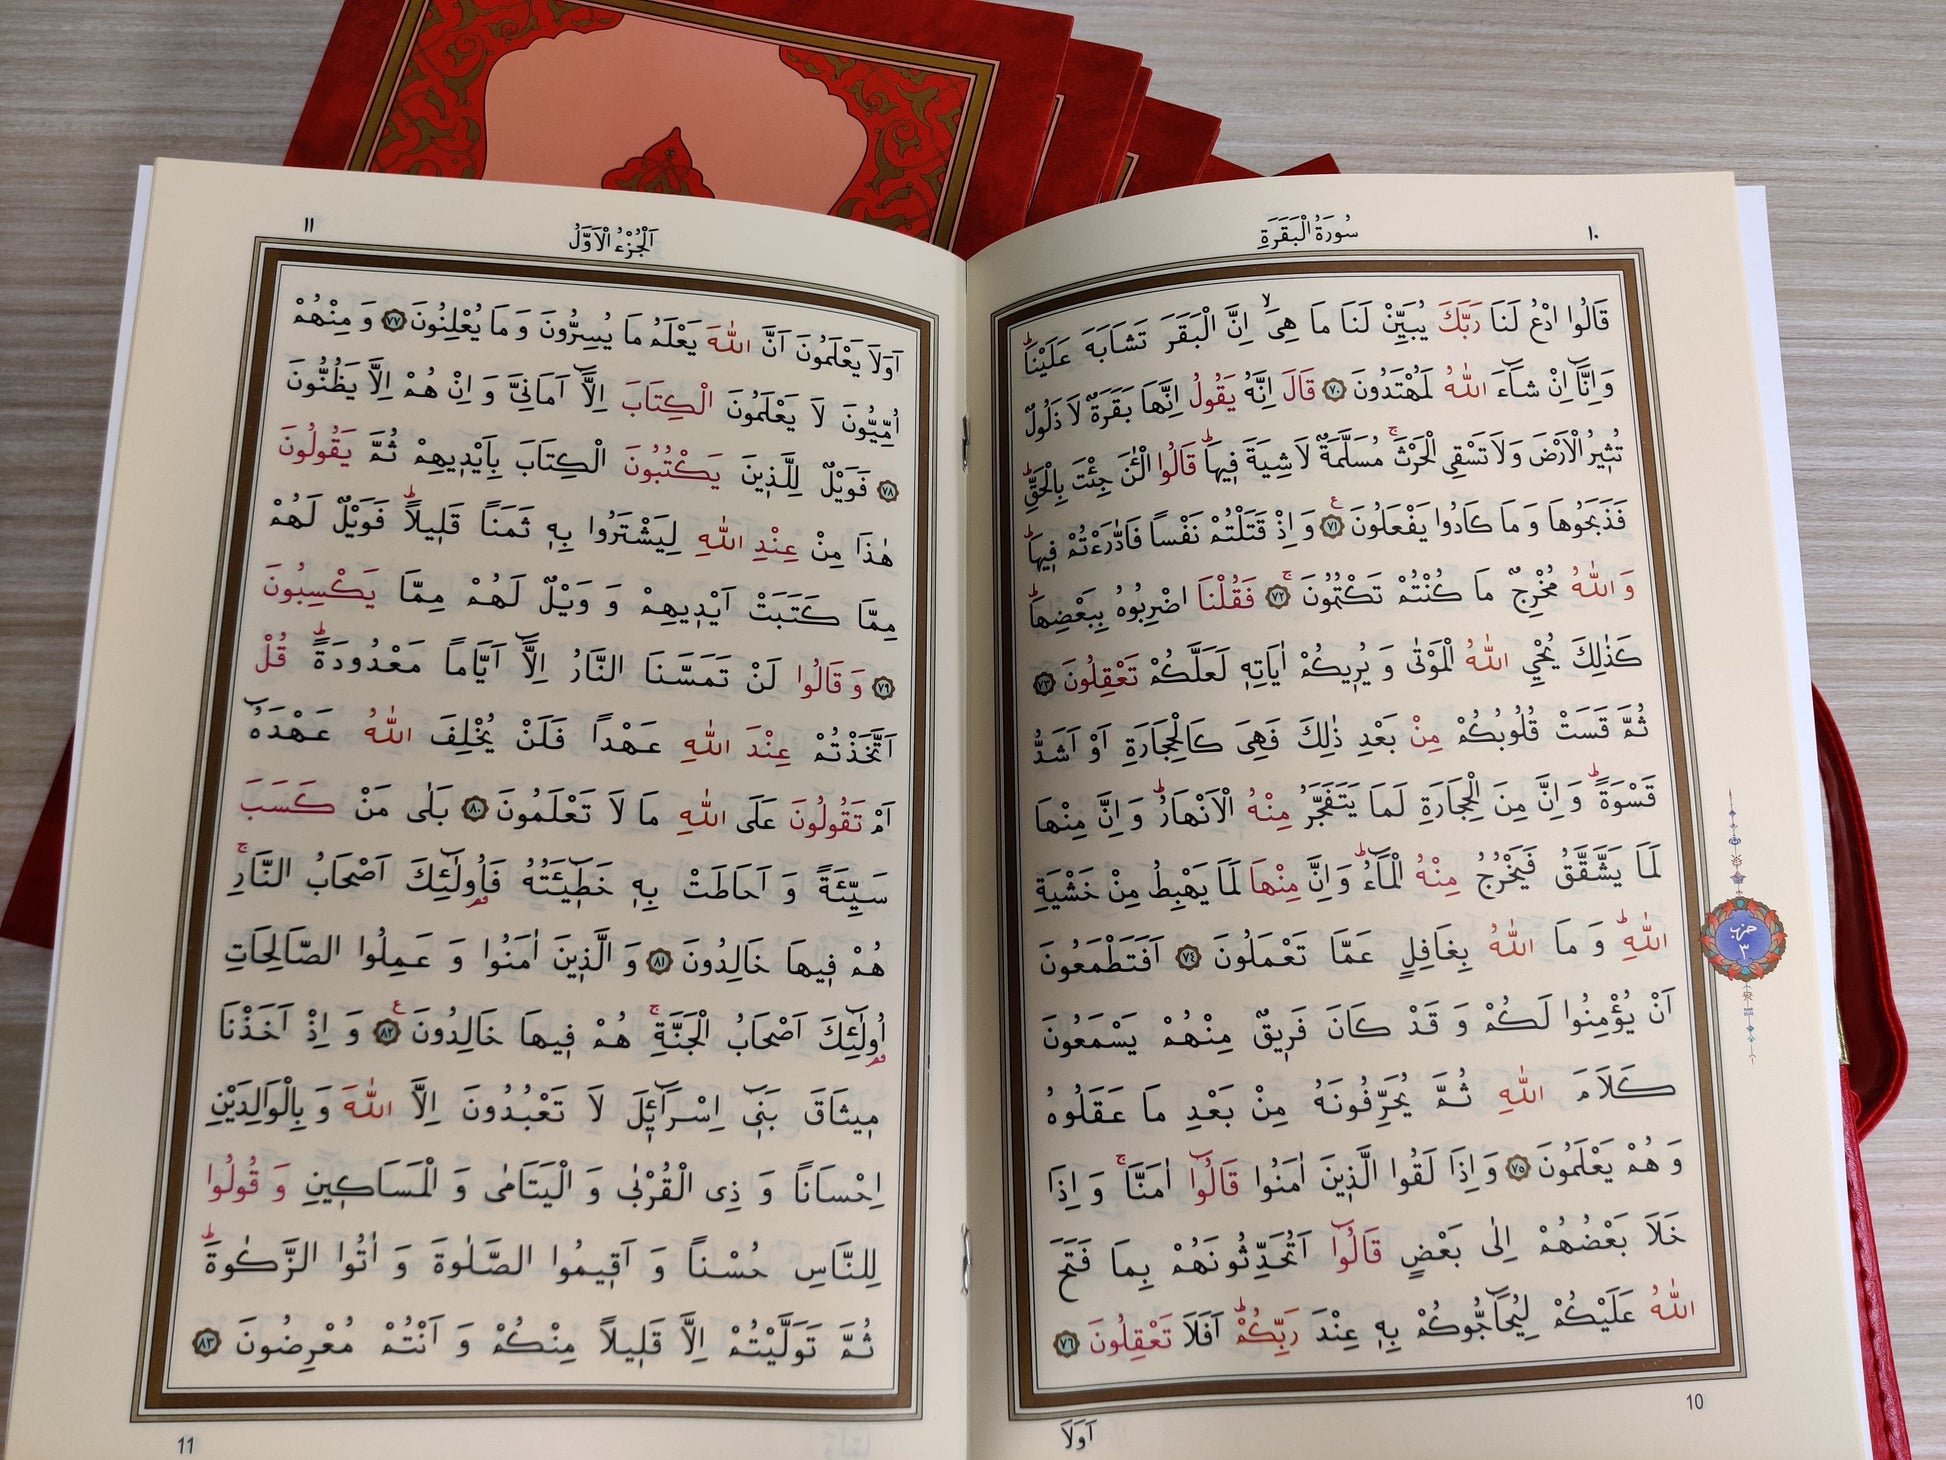 ١٠
سُورَةُ الْبَقَرَةِ
قَالُوا ادْعُ لَنَا رَبَّكَ يُبَيِّنْ لَنَا مَا هِىَۙ اِنَّ الْبَقَرَ تَشَابَهَ عَلَيْنَاۜ
وَ اِنَّٓا اِنْ شَٓاءَ اللّٰهُ لَمُهْتَدُونَ ﴿٧٠﴾ قَالَ اِنَّهُ يَقُولُ اِنَّهَا بَقَرَةٌ لَا ذَلُولٌ
تُثٖيرُ الْاَرْضَ وَ لَا تَسْقِى الْحَرْثَۚ مُسَلَّمَةٌ لَا شِيَةَ فٖيهَاۜ قَالُوا الْـٰٔنَ جِئْتَ بِالْحَقِّۜ
فَذَبَحُوهَا وَ مَا كَادُوا يَفْعَلُونَ ﴿٧١﴾ ع وَ اِذْ قَتَلْتُمْ نَفْسًا فَادّٰرَءْتُمْ فٖيهَاۜ
وَ اللّٰهُ مُخْرِجٌ مَا كُنْتُمْ تَكْتُمُونَۚ ﴿٧٢﴾ فَقُلْنَا اضْرِبُوهُ بِبَعْضِهَاۜ
كَذٰلِكَ يُحْيِ اللّٰهُ الْمَوْتٰى وَ يُرٖيكُمْ اٰيَاتِهٖ لَعَلَّكُمْ تَعْقِلُونَ ﴿٧٣﴾
ثُمَّ قَسَتْ قُلُوبُكُمْ مِنْ بَعْدِ ذٰلِكَ فَهِىَ كَالْحِجَارَةِ اَوْ اَشَدُّ
قَسْوَةًۜ وَ اِنَّ مِنَ الْحِجَارَةِ لَمَا يَتَفَجَّرُ مِنْهُ الْاَنْهَارُۜ وَ اِنَّ مِنْهَا
لَمَا يَشَّقَّقُ فَيَخْرُجُ مِنْهُ الْمَٓاءُۜ وَ اِنَّ مِنْهَا لَمَا يَهْبِطُ مِنْ خَشْيَةِ
اللّٰهِۜ وَ مَا اللّٰهُ بِغَافِلٍ عَمَّا تَعْمَلُونَ ﴿٧٤﴾ اَفَتَطْمَعُونَ
اَنْ يُؤْمِنُوا لَكُمْ وَ قَدْ كَانَ فَرٖيقٌ مِنْهُمْ يَسْمَعُونَ
كَلَامَ اللّٰهِ ثُمَّ يُحَرِّفُونَهُ مِنْ بَعْدِ مَا عَقَلُوهُ
وَ هُمْ يَعْلَمُونَ ﴿٧٥﴾ وَ اِذَا لَقُوا الَّذٖينَ اٰمَنُوا قَالُٓوا اٰمَنَّاۚ وَ اِذَا
خَلَا بَعْضُهُمْ اِلٰى بَعْضٍ قَالُٓوا اَتُحَدِّثُونَهُمْ بِمَا فَتَحَ
اللّٰهُ عَلَيْكُمْ لِيُحَٓاجُّوكُمْ بِهٖ عِنْدَ رَبِّكُمْۜ اَفَلَا تَعْقِلُونَ ﴿٧٦﴾
حزب
٣
10
اَوَلَا
اَلْجُزْءُ الْاَوَّلُ
١١
اَوَلَا يَعْلَمُونَ اَنَّ اللّٰهَ يَعْلَمُ مَا يُسِرُّونَ وَ مَا يُعْلِنُونَ ﴿٧٧﴾ وَ مِنْهُمْ
اُمِّيُّونَ لَا يَعْلَمُونَ الْكِتَابَ اِلَّٓا اَمَانِىَّ وَ اِنْ هُمْ اِلَّا يَظُنُّونَ
﴿٧٨﴾ فَوَيْلٌ لِلَّذٖينَ يَكْتُبُونَ الْكِتَابَ بِاَيْدٖيهِمْ ثُمَّ يَقُولُونَ
هٰذَا مِنْ عِنْدِ اللّٰهِ لِيَشْتَرُوا بِهٖ ثَمَنًا قَلٖيلًاۜ فَوَيْلٌ لَهُمْ
مِمَّا كَتَبَتْ اَيْدٖيهِمْ وَ وَيْلٌ لَهُمْ مِمَّا يَكْسِبُونَ
﴿٧٩﴾ وَ قَالُوا لَنْ تَمَسَّنَا النَّارُ اِلَّٓا اَيَّامًا مَعْدُودَةًۜ قُلْ
اَتَّخَذْتُمْ عِنْدَ اللّٰهِ عَهْدًا فَلَنْ يُخْلِفَ اللّٰهُ عَهْدَهُٓ
اَمْ تَقُولُونَ عَلَى اللّٰهِ مَا لَا تَعْلَمُونَ ﴿٨٠﴾ بَلٰى مَنْ كَسَبَ
سَيِّئَةً وَ اَحَاطَتْ بِهٖ خَطٖٓيـَٔتُهُ فَاُو۬لٰٓئِكَ اَصْحَابُ النَّارِۚ
هُمْ فٖيهَا خَالِدُونَ ﴿٨١﴾ وَ الَّذٖينَ اٰمَنُوا وَ عَمِلُوا الصَّالِحَاتِ
اُو۬لٰٓئِكَ اَصْحَابُ الْجَنَّةِۚ هُمْ فٖيهَا خَالِدُونَ ﴿٨٢﴾ ع وَ اِذْ اَخَذْنَا
مٖيثَاقَ بَنٖٓى اِسْرَٓائٖلَ لَا تَعْبُدُونَ اِلَّا اللّٰهَ وَ بِالْوَالِدَيْنِ
اِحْسَانًا وَ ذِى الْقُرْبٰى وَ الْيَتَامٰى وَ الْمَسَاكٖينِ وَ قُولُوا
لِلنَّاسِ حُسْنًا وَ اَقٖيمُوا الصَّلٰوةَ وَ اٰتُوا الزَّكٰوةَۜ
ثُمَّ تَوَلَّيْتُمْ اِلَّا قَلٖيلًا مِنْكُمْ وَ اَنْتُمْ مُعْرِضُونَ ﴿٨٣﴾
11